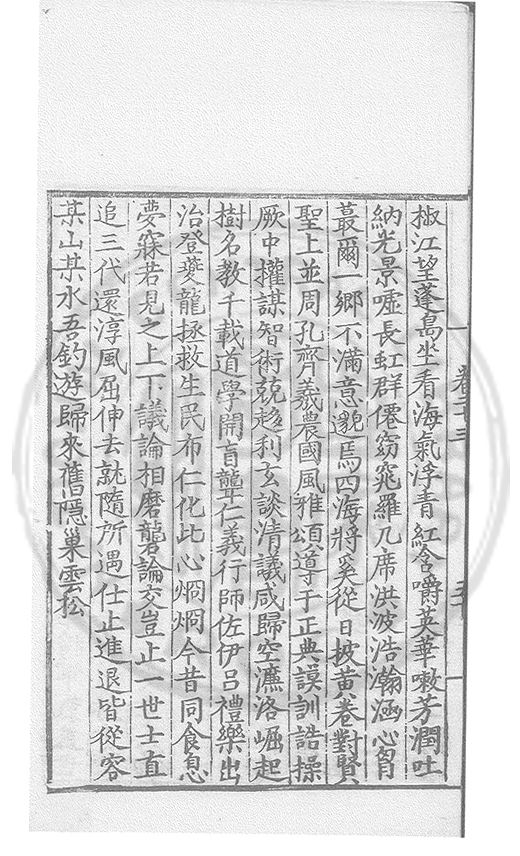 卷二十三
椒江望蓬島坐看海氣浮青紅含嚼英華嗽芳潤吐
納光景噓長虹群僊窈窕羅几席洪波浩瀚涵心胷
蕞爾一鄉不滿意邈焉四海將奚從日披黃卷對賢
聖上並周孔齊羲農國風雅頌導于正典謨訓誥操
厥中權謀智術兢趍利玄談清議咸歸空濂洛崛起
樹名教千載道學開盲聾仁義行師佐伊呂禮樂出
治登夔龍拯救生民布仁化此心烱烱今昔同食息
夢寐若見之上下議論相磨礱論交豈止一世士直
追三代還淳風屈伸去就隨所遇仕止進退皆從容
某山某水吾釣遊歸來舊隱巢雲松